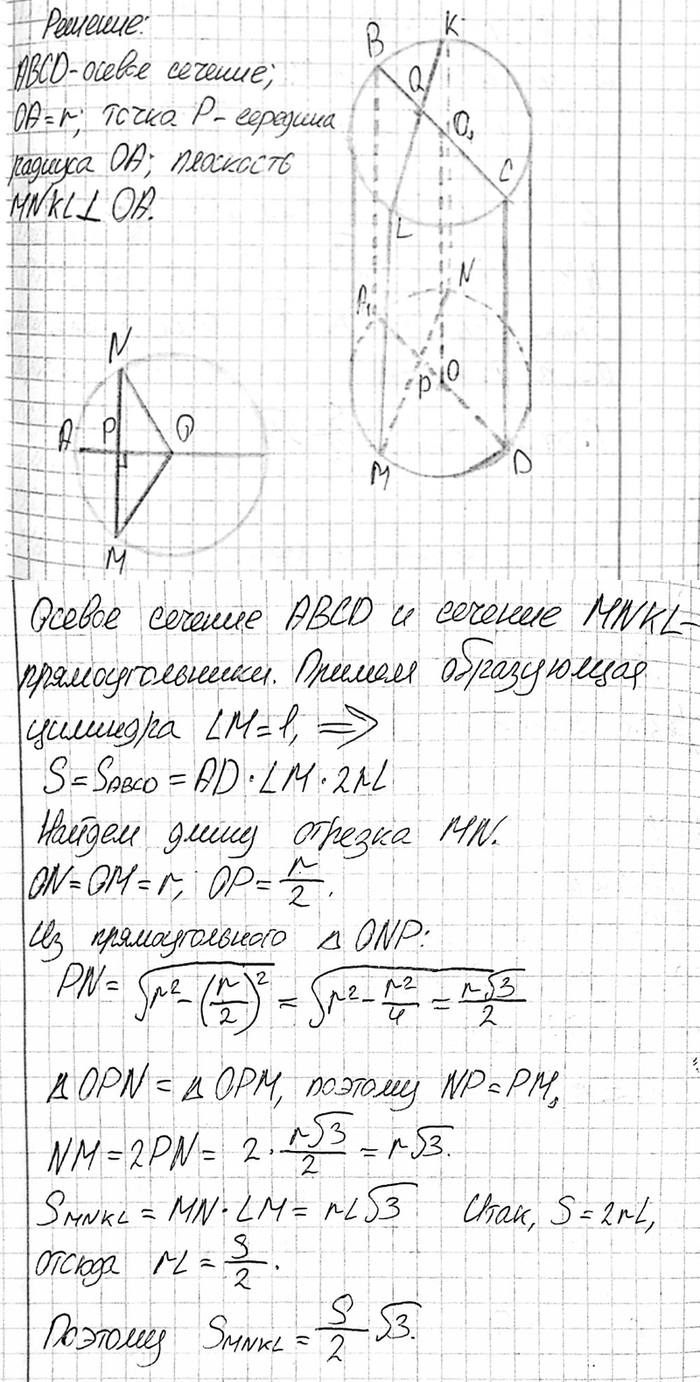 Решение:
ABCD-осевое сечение;
OA=r; точка P-середина
радиуса OA; плоскость
MNKL⊥OA.
B
K
Q
O₁
C
L
N
A₁
P
O
M
D
N
A
P
O
M
Осевое сечение ABCD и сечение MNKL-
прямоугольники. Примем образующая
цилиндра LM=l, ⇒
S=S_ABCD=AD·LM·2rL
Найдем длину отрезка MN.
ON=OM=r; OP=r/2.
Из прямоугольного △ONP:
PN=√(r²-(r/2)²)=√(r²-r²/4)=r√3/2
△OPN=△OPM, поэтому NP=PM,
NM=2PN= 2·r√3/2=r√3.
S_MNKL=MN·LM=rL√3 Итак, S=2rL,
отсюда rL=S/2.
Поэтому S_MNKL=S/2√3.